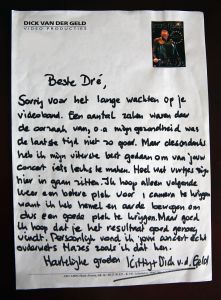 DICK VAN DER GELD
VIDEO PRODUCTIES
Beste Dré,
Sorry voor het lange wachten op je
videoband. Een aantal zaken waren daar
de oorzaak van, o.a mijn gezondheid was
de laatste tijd niet zo goed. Maar desondanks
heb ik mijn uiterste best gedaan om van jouw
concert iets leuks te maken. Heel wat uurtjes zijn
hier in gaan zitten. Ik hoop alleen volgende
keer een betere plek voor de camera te krijgen
want ik heb hemel en aarde bewogen om
dus een goede plek te krijgen. Maar goed
ik hoop dat je het resultaat goed genoeg
vindt. Persoonlijk vond ik jouw concert echt
ouderwets Hazes zoals ik dat ken.
Hartelijke groeten Kitty + Dick v.d. Geld